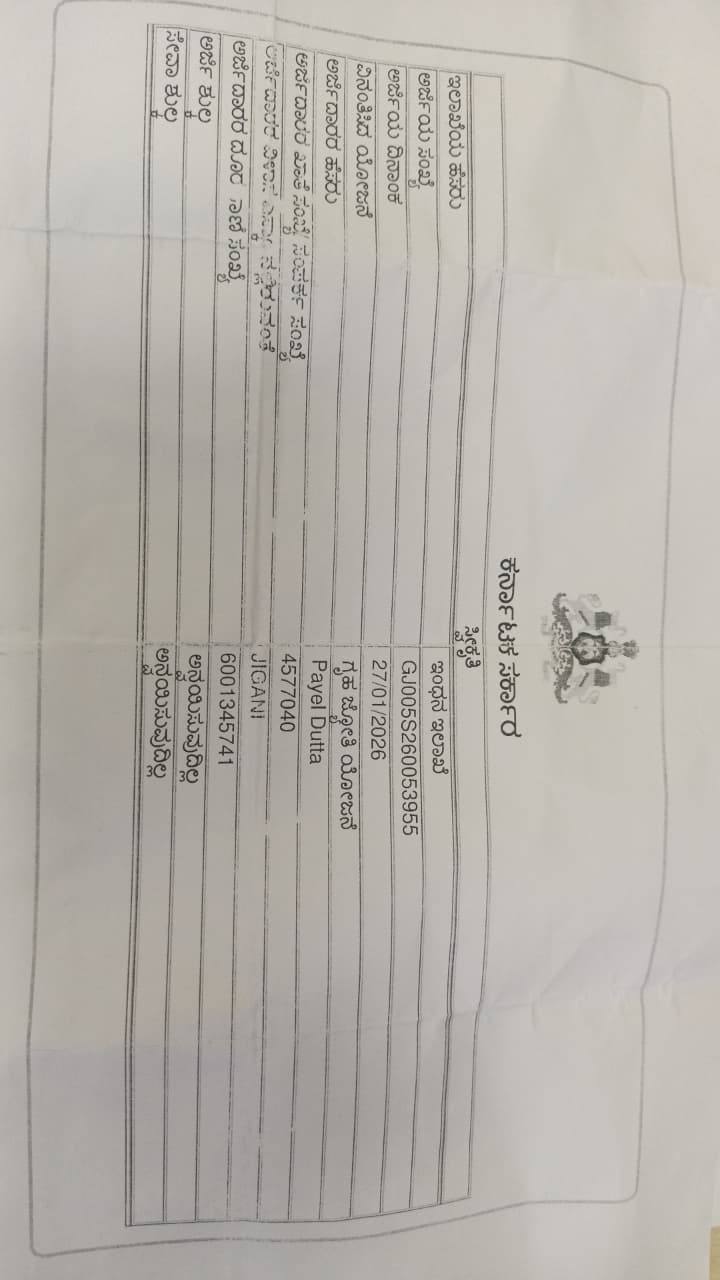 ಕರ್ನಾಟಕ ಸರ್ಕಾರ
ಸ್ವೀಕೃತಿ
ಇಲಾಖೆಯ ಹೆಸರು ಇಂಧನ ಇಲಾಖೆ
ಅರ್ಜಿಯ ಸಂಖ್ಯೆ GJ005S260053955
ಅರ್ಜಿಯ ದಿನಾಂಕ 27/01/2026
ವಿನಂತಿಸಿದ ಯೋಜನೆ ಗೃಹ ಜ್ಯೋತಿ ಯೋಜನೆ
ಅರ್ಜಿದಾರರ ಹೆಸರು Payel Dutta
ಅರ್ಜಿದಾರರ ಖಾತೆ ಸಂಖ್ಯೆ/ ಸಂಪರ್ಕ ಸಂಖ್ಯೆ 4577040
ಅರ್ಜಿದಾರರ ವಿಳಾಸ JIGANI
ಅರ್ಜಿದಾರರ ದೂರವಾಣಿ ಸಂಖ್ಯೆ 6001345741
ಅರ್ಜಿ ಶುಲ್ಕ ಅನ್ವಯಿಸುವುದಿಲ್ಲ
ಸೇವಾ ಶುಲ್ಕ ಅನ್ವಯಿಸುವುದಿಲ್ಲ